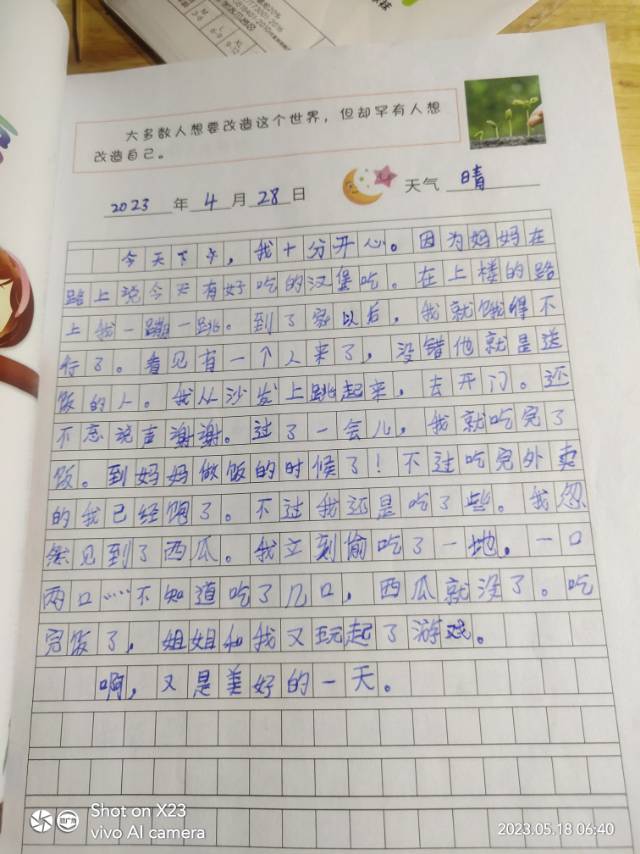 大多数人想要改造这个世界，但却罕有人想
改造自己。
2023 年 4 月 28 日 天气 晴
今天下午，我十分开心。因为妈妈在
路上说今天有好吃的汉堡吃。在上楼的路
上我一蹦一跳。到了家以后，我就饿得不
行了。看见有一个人来了，没错他就是送
饭的人。我从沙发上跳起来，去开门。还
不忘说声谢谢。过了一会儿，我就吃完了
饭。到妈妈做饭的时候了！不过吃完外卖
的我已经饱了。不过我还是吃了些。我忽
然见到了西瓜。我立刻偷吃了一地。一口
两口……不知道吃了几口，西瓜就没了。吃
完饭了，姐姐和我又玩起了游戏。
啊，又是美好的一天。
Shot on X23
vivo AI camera
2023.05.18 06:40